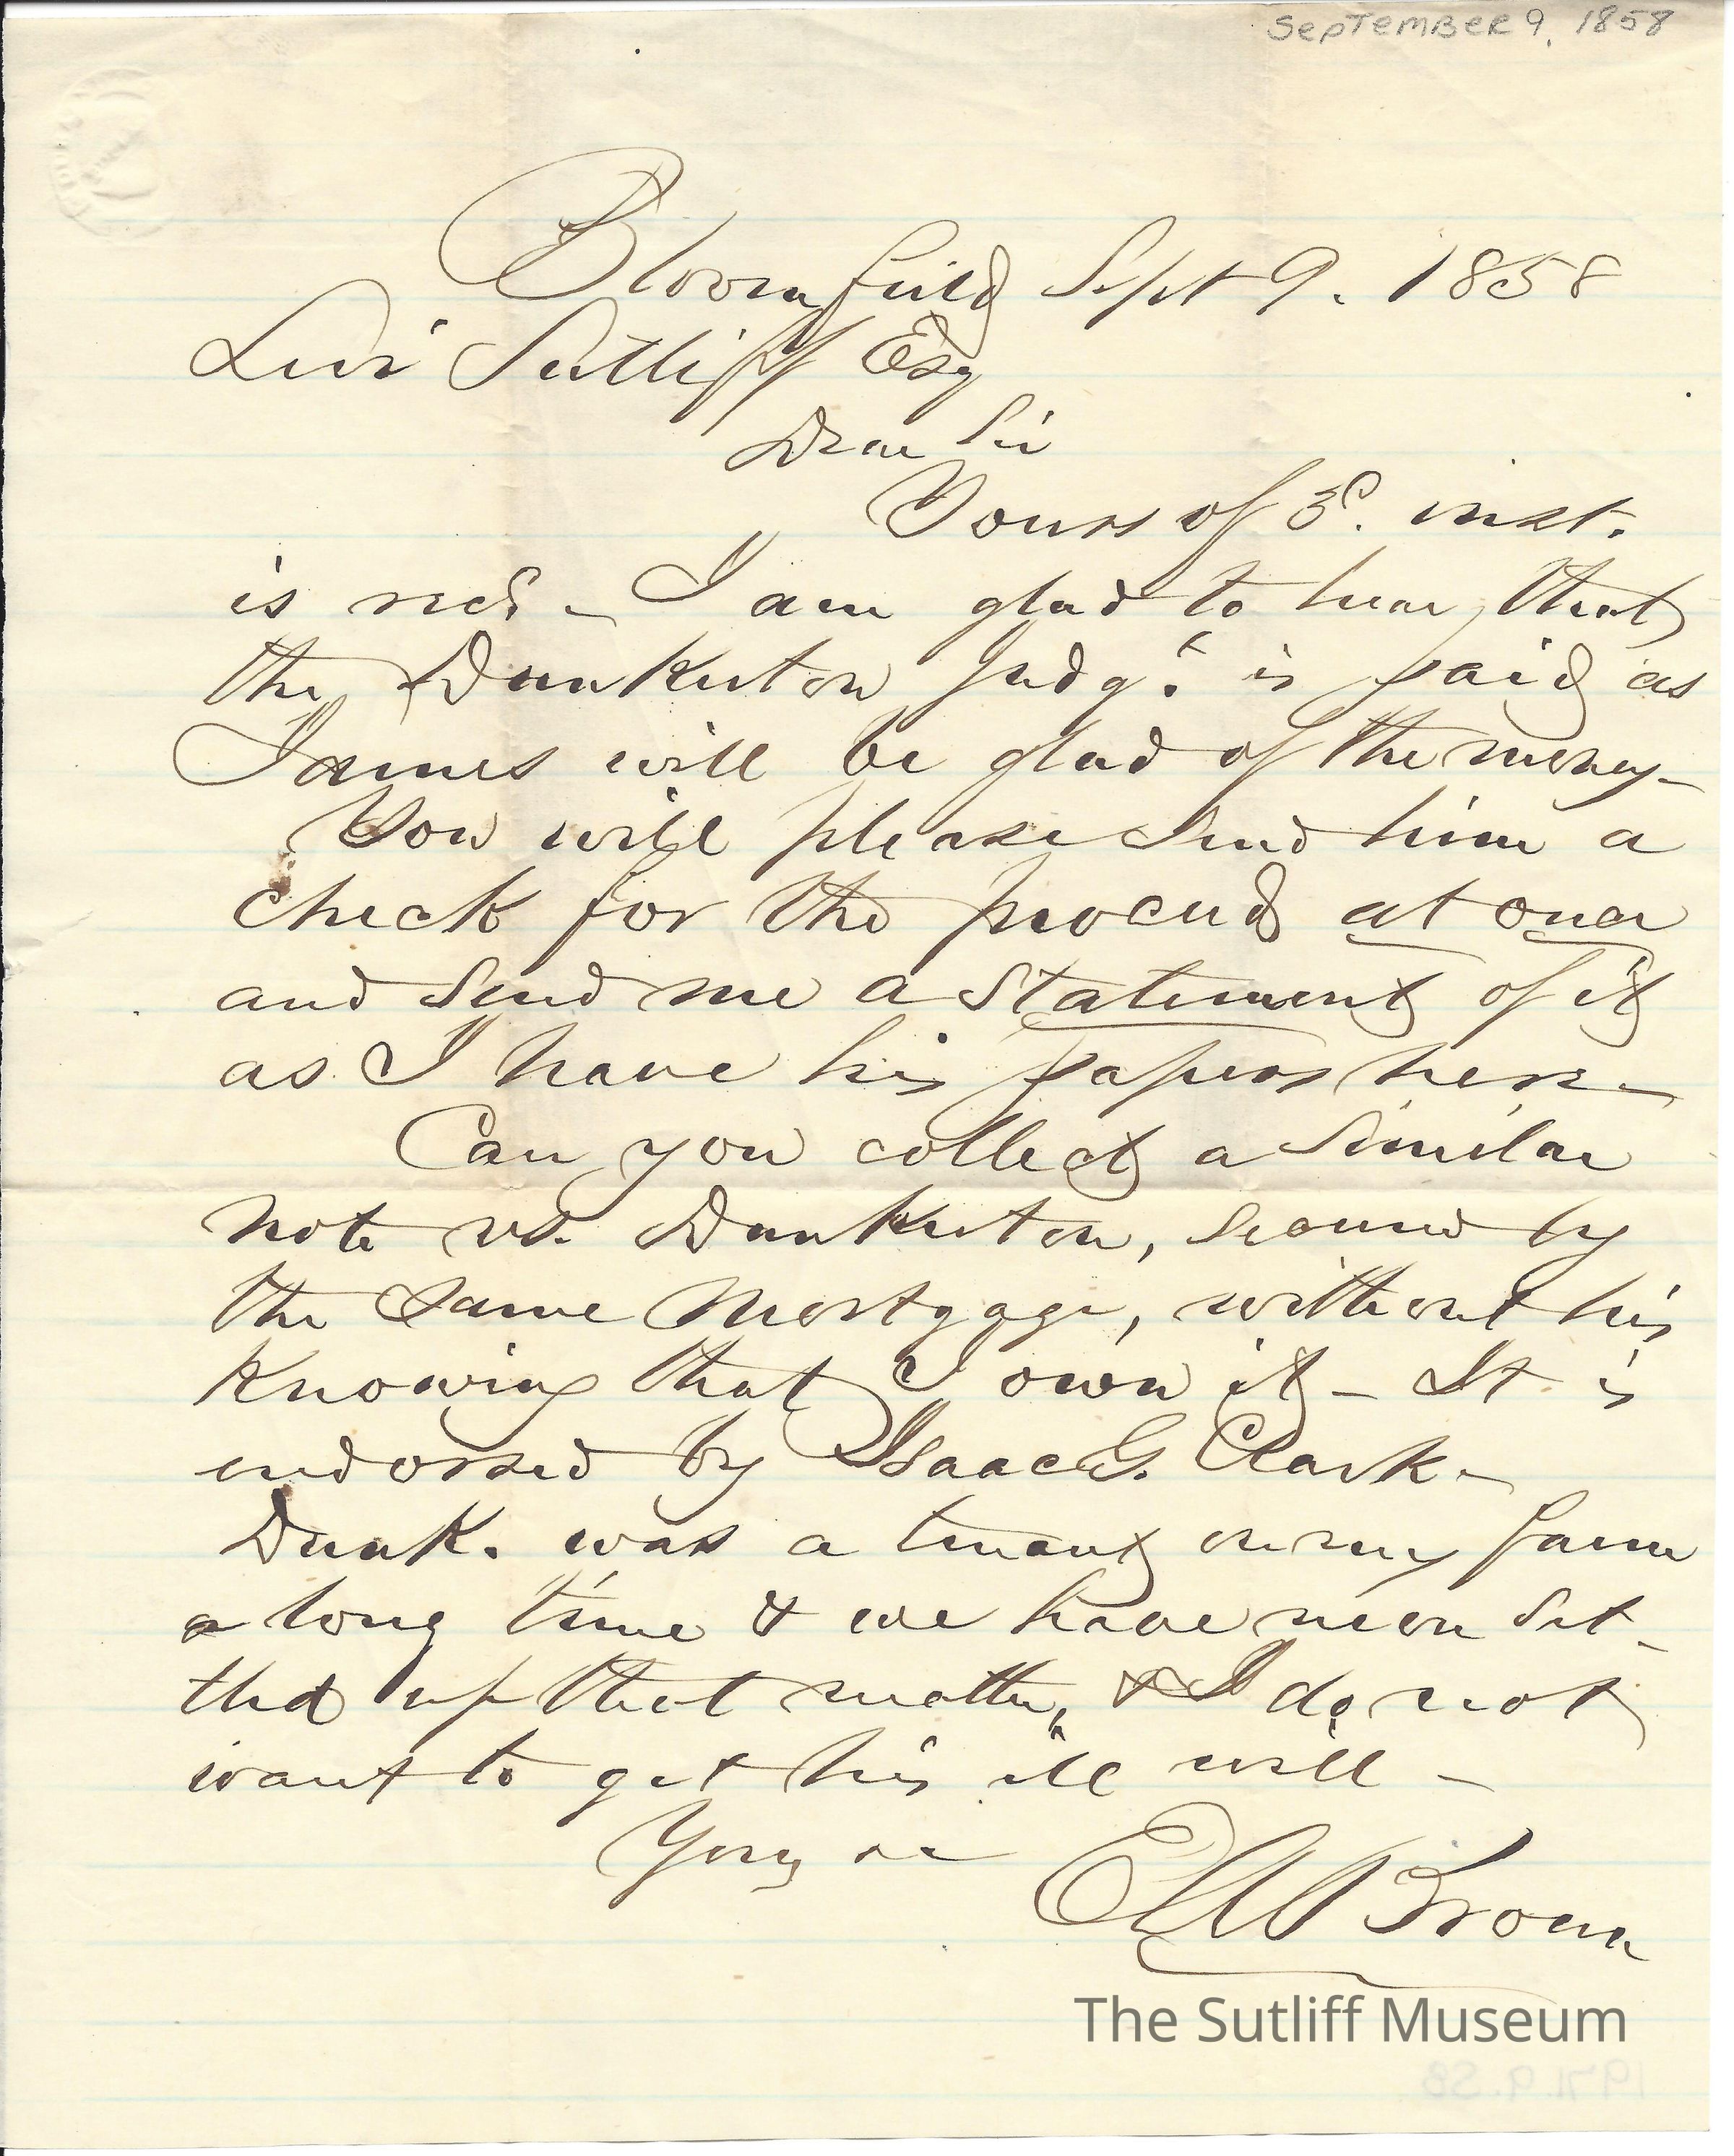 September 9, 1858
Bloomfield Sept 9. 1858
Levi Sutliff Esq
Dear Sir
Yours of 3d. inst.
is recd. – I am glad to hear that
the Dunkerton Judgt. is paid as
James will be glad of the money–
You will please send him a
check for the proceeds at once
and send me a statement of it
as I have his papers here–
Can you collect a similar
note vs. Dunkerton, secured by
the same Mortgage, without his
Knowing that I own it – It is
endorsed by Isaac G. Clark–
Dunk. was a tenant on my farm
a long time & we have never set-
tled up that matter, & I do not
want to get his ill will –
Yours &c E A Brown
The Sutliff Museum
1971.9.58